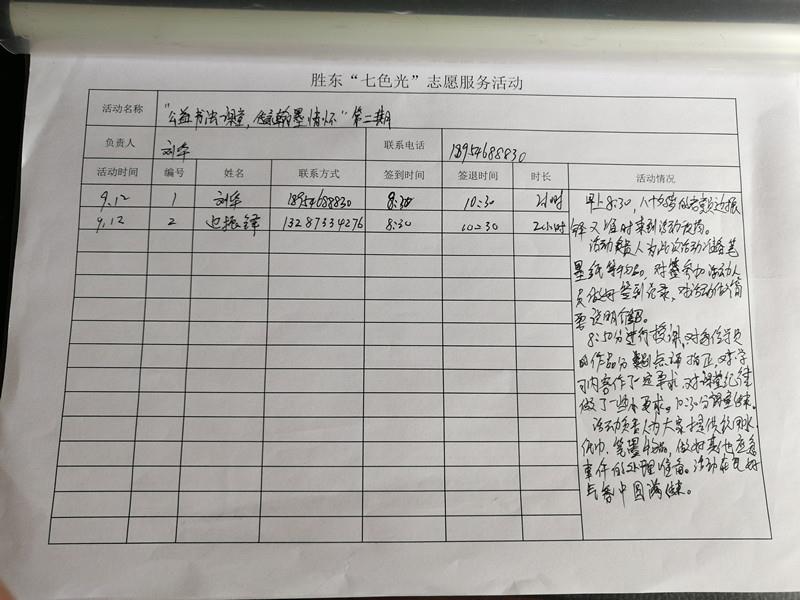 胜东“七色光”志愿服务活动
活动名称 “公益书法课堂，翰墨情怀”第二期
负责人 刘华 联系电话 18954688830
活动时间 编号 姓名 联系方式 签到时间 签退时间 时长 活动情况
9.12 1 刘华 18954688830 8:30 10:30 2小时
9.12 2 边振铎 13287334276 8:30 10:30 2小时
早上8:30，八十的老党员边振
铎又准时来到活动
活动负责人为此次活动准备笔
墨纸等物品，对参加活动人
员做好签到记录，对活动作简
要说明介绍。
8:50分进行授课，对每位学员
的作品分别点评指正，对学
习内容作了一定要求，对课堂纪律
做了一些小要求。10:30分课堂结束。
活动负责人为大家提供饮用水、
纸巾、笔墨物品，做好其他应急
事件的处理准备。活动在良好
中圆满结束。